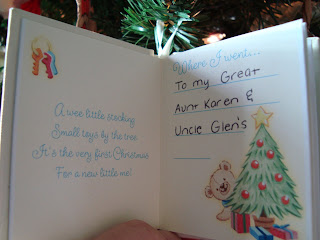 A wee little stocking
Small toys by the tree
It's the very first Christmas
For a new little me!
Where I went...
To my Great
Aunt Karen &
Uncle Glen's